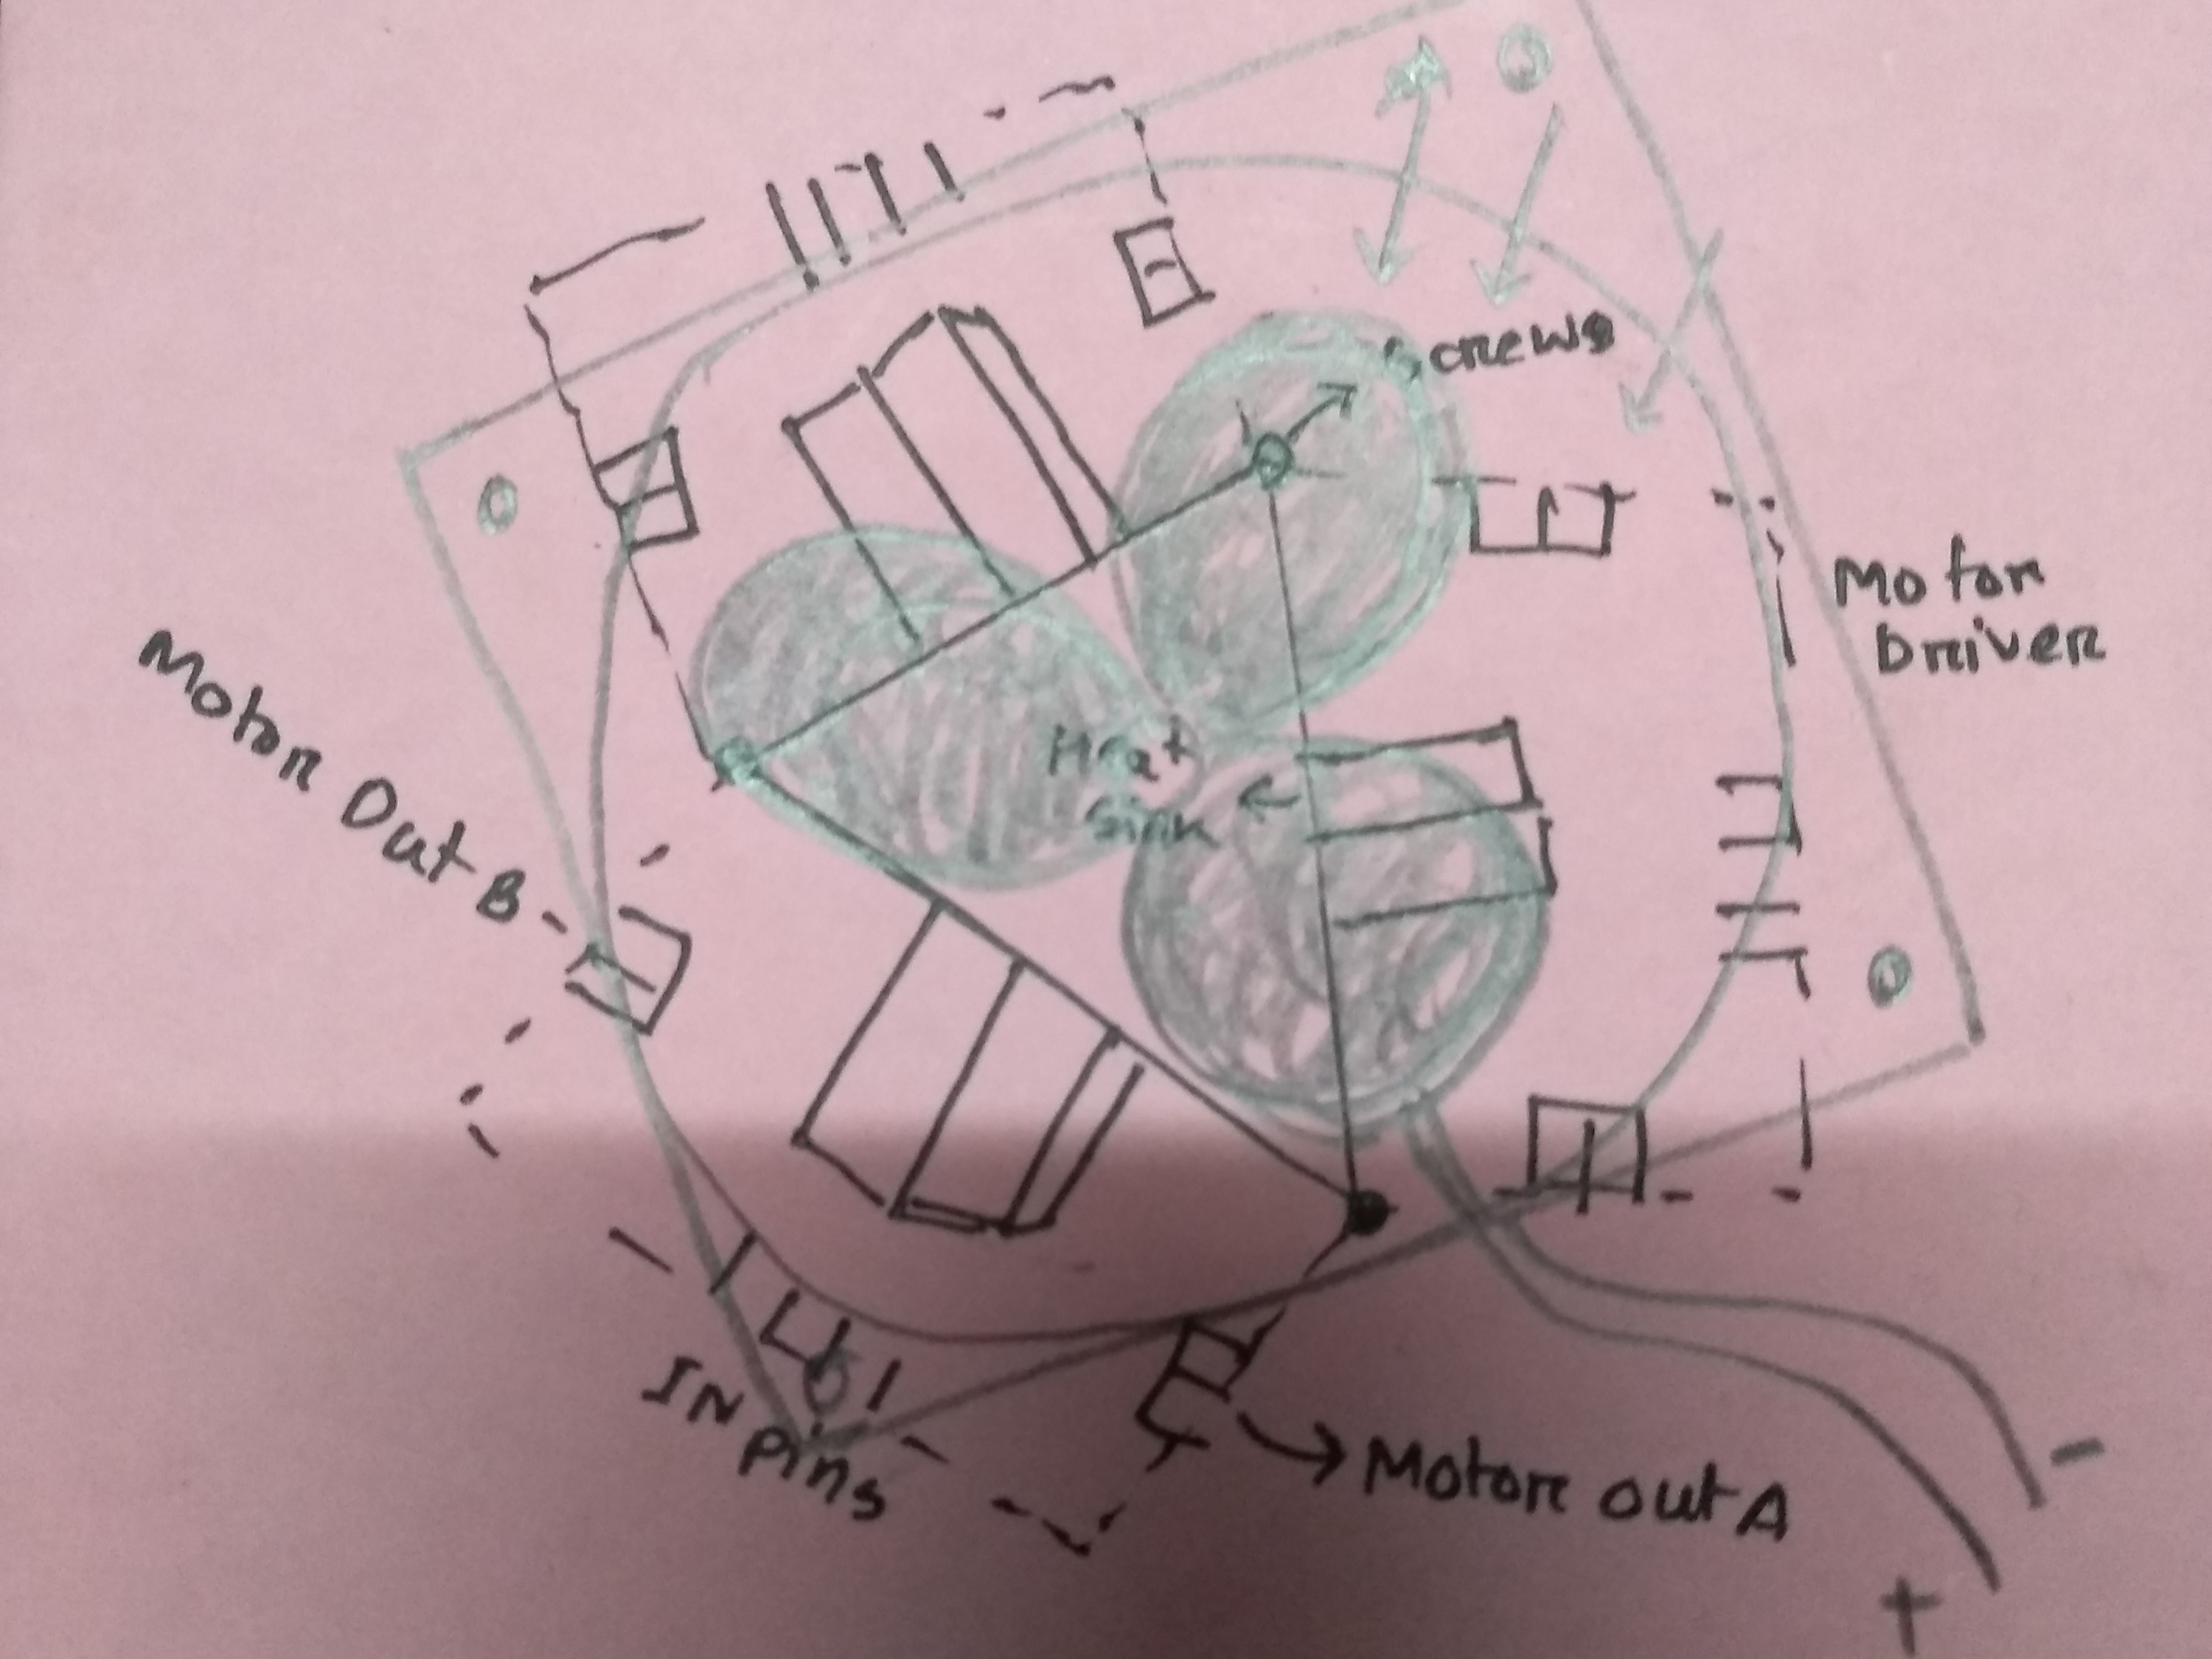 Screws
Motor
Driver
Motor Out B
Heat
Sink
IN
Pins
Motor out A
-
+